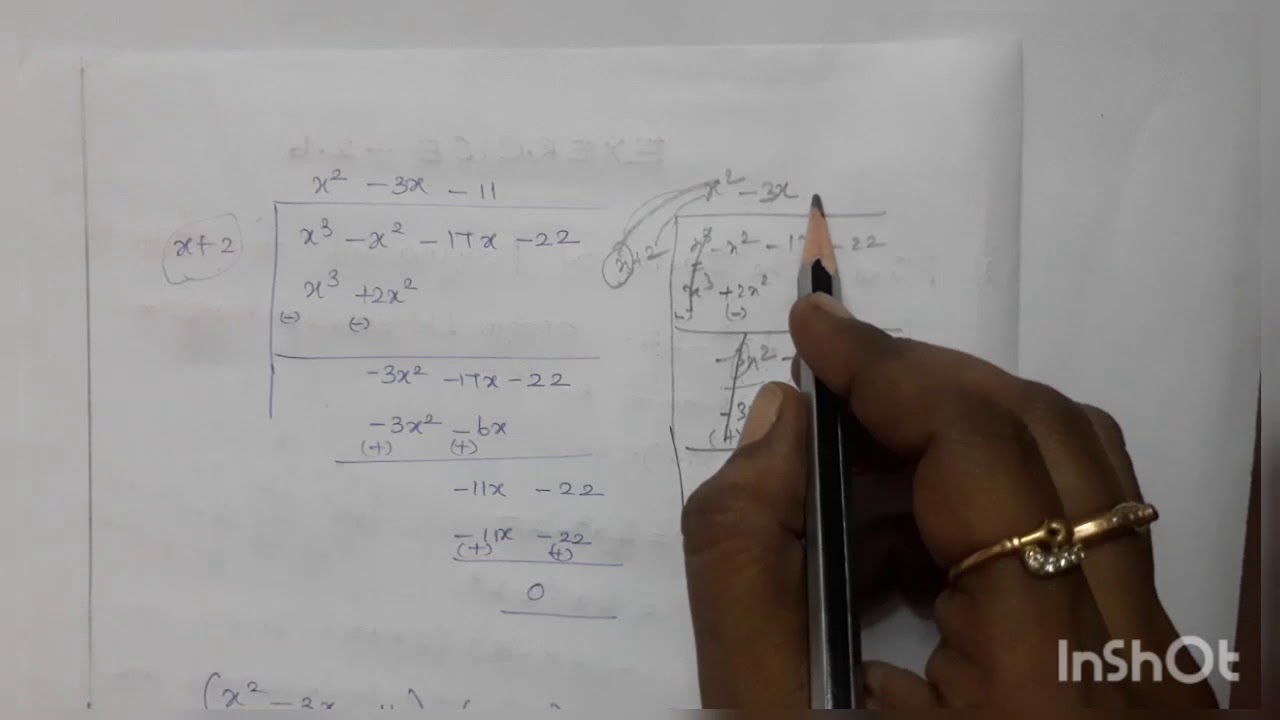 x² - 3x - 11
x+2 x³ - x² - 17x - 22
x³ +2x²
(-) (-)
-3x² - 17x - 22
-3x² - 6x
(+) (+)
-11x - 22
-11x - 22
(+) (+)
0
x² - 3x
x+2 x³ - x² - 22
x³ +2x²
(-) (-)
-3x² -
(+)
(x² - 3x
InShOt